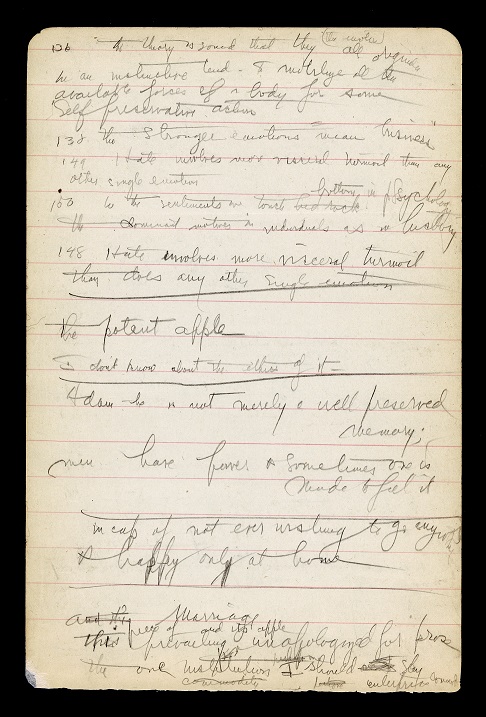 136 "the theory is sound that they all originate
in an instinctive tend. & mobilize all the
available forces of a body for some
self preservative action
138 the "stronger emotions "mean business"
149 Hate involves more visceral turmoil than any
other single emotion
150 In the sentiments we touch bottom in psychology
the dominant motives in individuals as in history
148 Hate involves more visceral turmoil
than does any other single emotion
the potent apple
I don't know about the ethics of it —
Adam - he is not merely a well preserved
memory;
men have power & sometimes one is
made to feel it
of not ever wishing to go
& happy only at home
Marriage
and its apple
this prevailing unapologized for
the one institution I should say
commodity enterprise